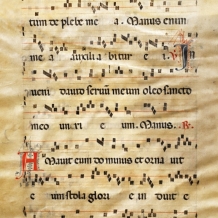 tum de plebe me a. Manus enim
me a auxilia bitur e i. I
ueni dauid seruū meum oleo sancto
meo un xi e um. Manus. R.
A Mauit eum do minus et orna uit
e um stola glori e in duit e